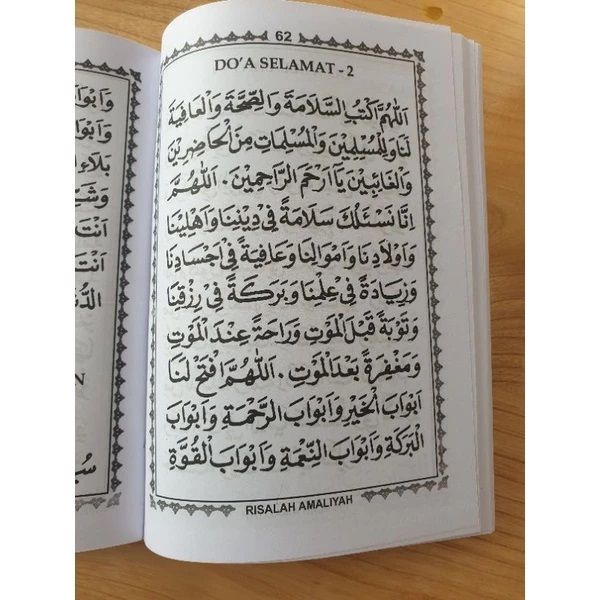 62
DO'A SELAMAT - 2
اَللّٰهُمَّ اكْتُبِ السَّلَامَةَ وَالصِّحَّةَ وَالْعَافِيَةَ
لَنَا وَلِلْمُسْلِمِيْنَ وَالْمُسْلِمَاتِ مِنَ الْحَاضِرِيْنَ
وَالْغَائِبِيْنَ يَآ اَرْحَمَ الرَّاحِمِيْنَ. اَللّٰهُمَّ
اِنَّا نَسْئَلُكَ سَلَامَةً فِى دِيْنِنَا وَاَهْلِيْنَا
وَاَوْلَادِنَا وَاَمْوَالِنَا وَعَافِيَةً فِى اَجْسَادِنَا
وَزِيَادَةً فِى عِلْمِنَا وَبَرَكَةً فِى رِزْقِنَا
وَتَوْبَةً قَبْلَ الْمَوْتِ وَرَاحَةً عِنْدَ الْمَوْتِ
وَمَغْفِرَةً بَعْدَ الْمَوْتِ. اَللّٰهُمَّ افْتَحْ لَنَا
اَبْوَابَ الْخَيْرِ وَاَبْوَابَ الرَّحْمَةِ وَاَبْوَابَ
الْبَرَكَةِ وَاَبْوَابَ النِّعْمَةِ وَاَبْوَابَ الْقُوَّةِ
RISALAH AMALIYAH